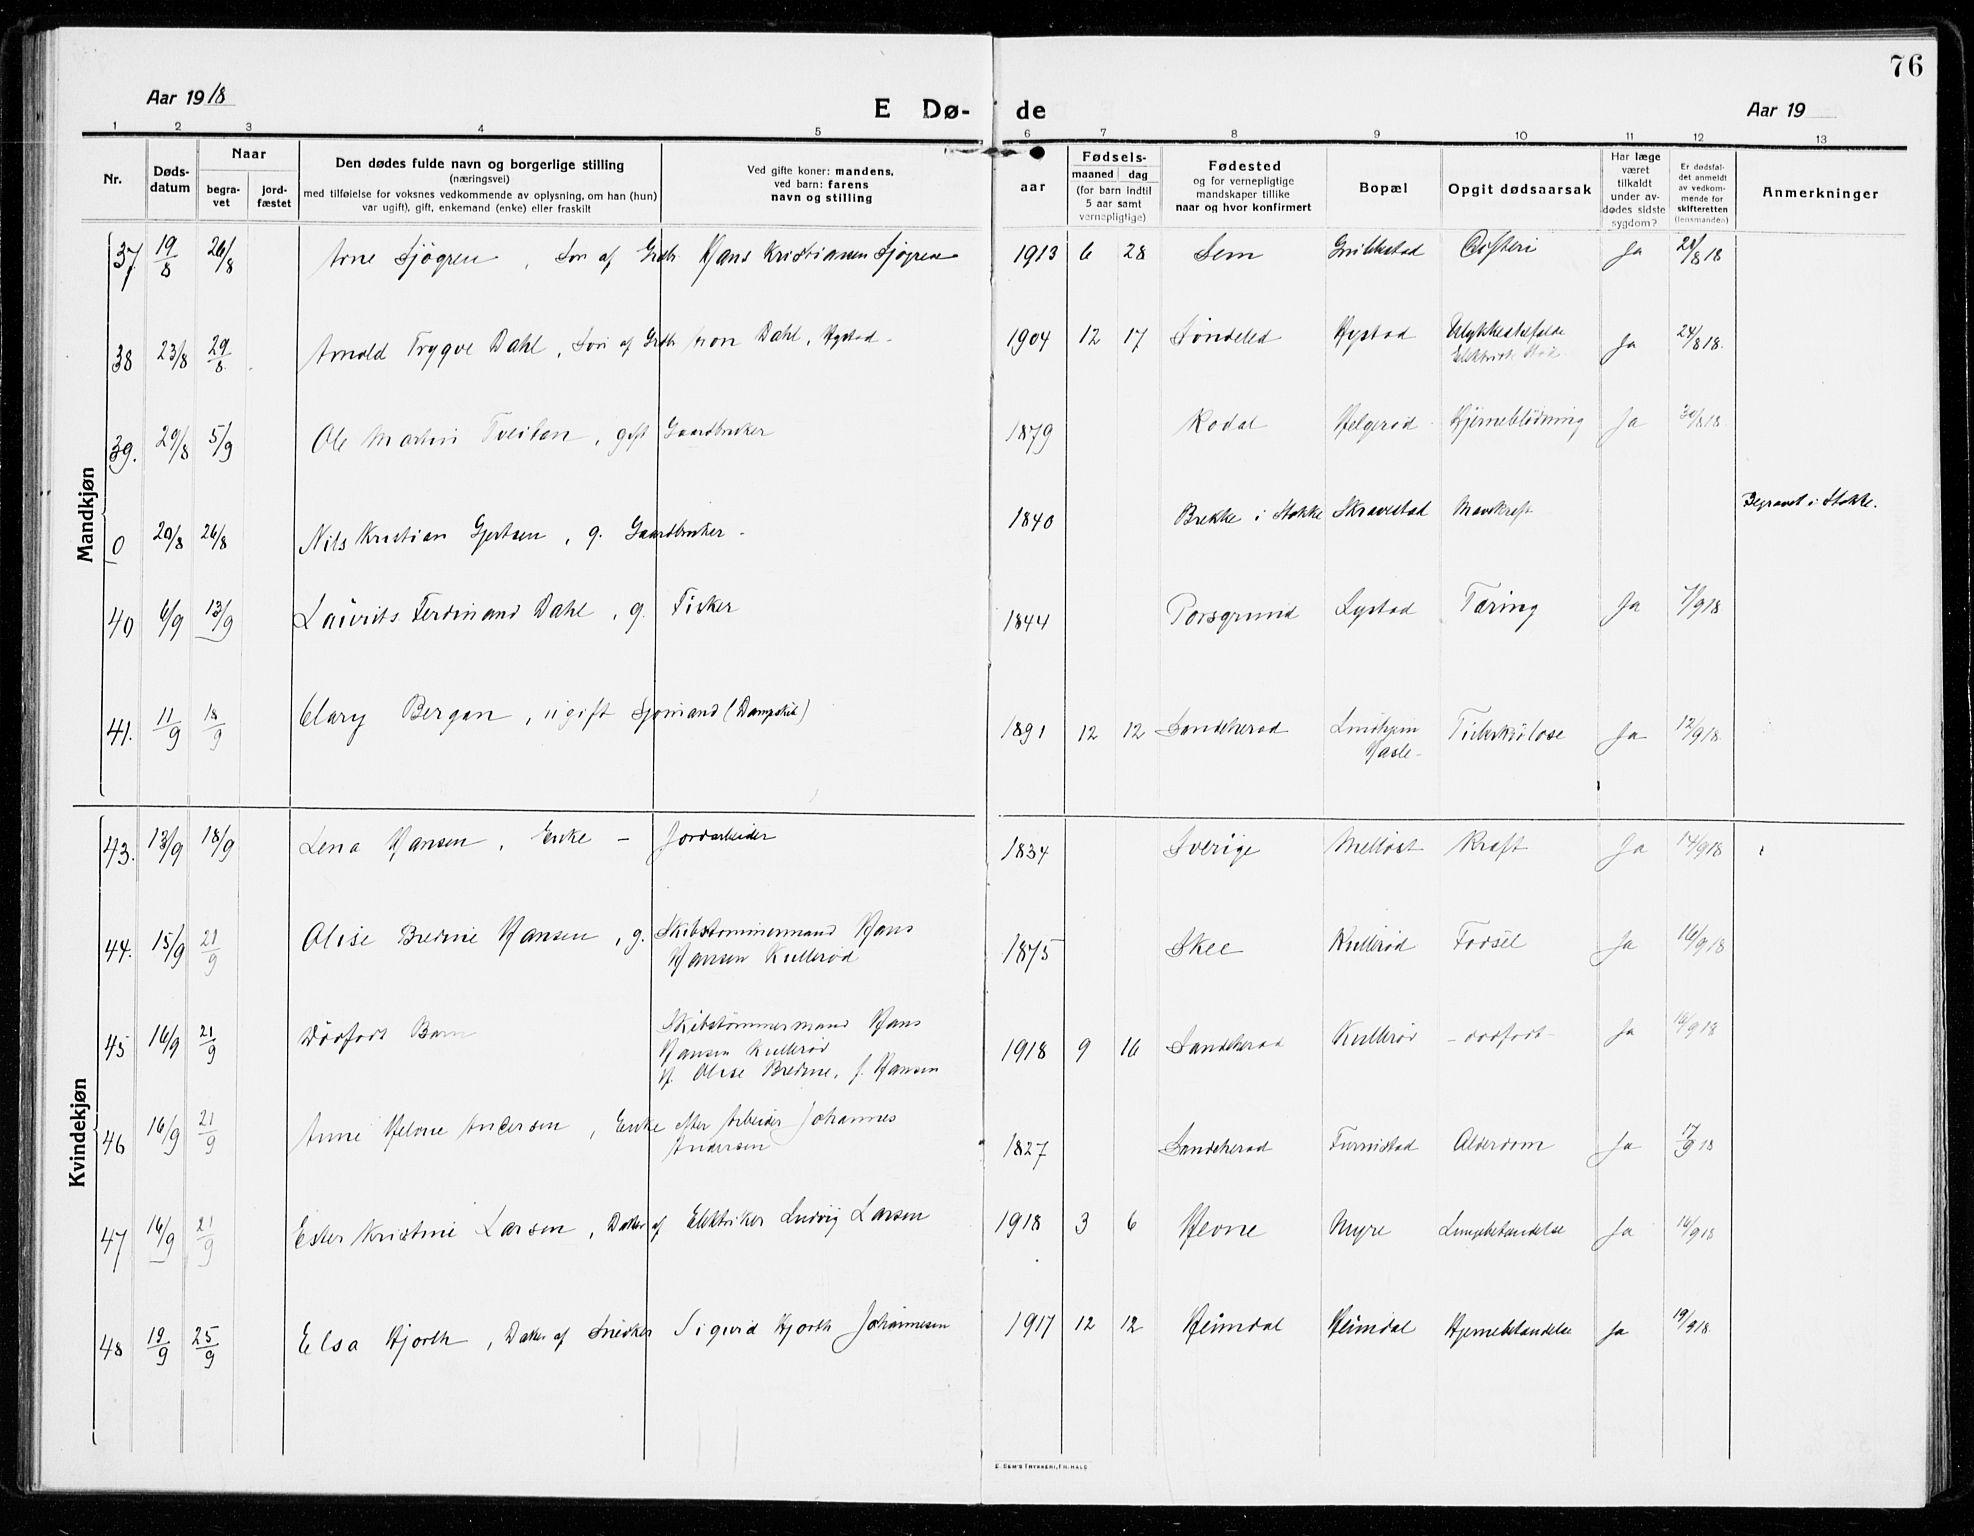 76
Aar 1918
E Dø-
de
Aar 19
1 2 3 4 5 6 7 8 9 10 11 12 13
Nr.
Døds-
datum
Naar
begra-
vet
jord-
fæstet
Den dødes fulde navn og borgerlige stilling
(næringsvei)
med tilføielse for voksnes vedkommende av oplysning, om han (hun)
var ugift), gift, enkemand (enke) eller fraskilt
Ved gifte koner: mandens,
ved barn: farens
navn og stilling
aar
Fødsels-
maaned dag
(for barn indtil
5 aar samt
vernepligtige)
Fødested
og for vernepligtige
mandskaper tillike
naar og hvor konfirmert
Bopæl
Opgit dødsaarsak
Har læge
været
tilkaldt
under av-
dødes sidste
sygdom?
Er dødsfal-
det anmeldt
av vedkom-
mende for
skifteretten
(lensmanden)
Anmerkninger
Mandkjøn
37 19/8 26/8 Arne Sjögren, Søn af Hans Kristiansen Sjögren 1913 6 28 Sem Ja 21/8 18
38 23/8 29/8 Arnold Trygve Dahl, Søn af Aron Dahl, Hystad 1904 12 17 Søndeled Hystad Ulykkestilfælde Ja 24/8 18.
Elektrisk Stød
39. 29/8 5/9 Ole Martin Tveitan, gift Gaardbruker 1879 Rodal Helgerød Hjerneblödning Ja 30/8 18.
0 20/8 26/8 Nils Kristian Gjertsen, g. Gaardbruker 1840 Brekke i Stokke Skravestad Mavekræft Begravet i Stokke.
40 6/9 13/9 Laurits Ferdinand Dahl, g. Fisker 1844 Porsgrund Lystad Tæring Ja 7/9 18
41. 11/9 18/9 Clary Bergan, ugift Sjømand (Dampskib) 1891 12 12 Sandeherad Lindhjem Ja 12/9 18
Hasle
Kvindekjøn
43. 13/9 18/9 Lena Hansen, Enke – Jordarbeider 1834 Sverige Melløst Kræft Ja 14/9 18
44. 15/9 21/9 Alise Bredine Hansen, g. Skibstømmermand Hans 1875 Skee Kullerød Fødsel Ja 16/9 18
Hansen Kullerød
45 16/9 21/9 Dödfødt Barn Skibstömmermand Hans 1918 9 16 Sandeherad Kullerød – dødfødt – Ja 16/9 18
Hansen Kullerød
H. Alise Bredine, f. Hansen
46 16/9 21/9 Anne Helene Andersen, Enke efter Arbeider Johannes 1827 Sandeherad Furustad Alderdom Ja 17/9 18
Andersen
47 16/9 21/9 Ester Kristine Larsen, Datter af Elektriker Ludvig Larsen 1918 3 6 Hevne Myre Lungebetændelse Ja 16/9 18
48 19/9 25/9 Elsa Hjorth, Datter af Snedker Sigurd Hjorth Johannesen 1917 12 12 Heimdal Heimdal Hjernebetændelse Ja 19/9 18.
E. SEM'S TRYKKERI, FR.HALD